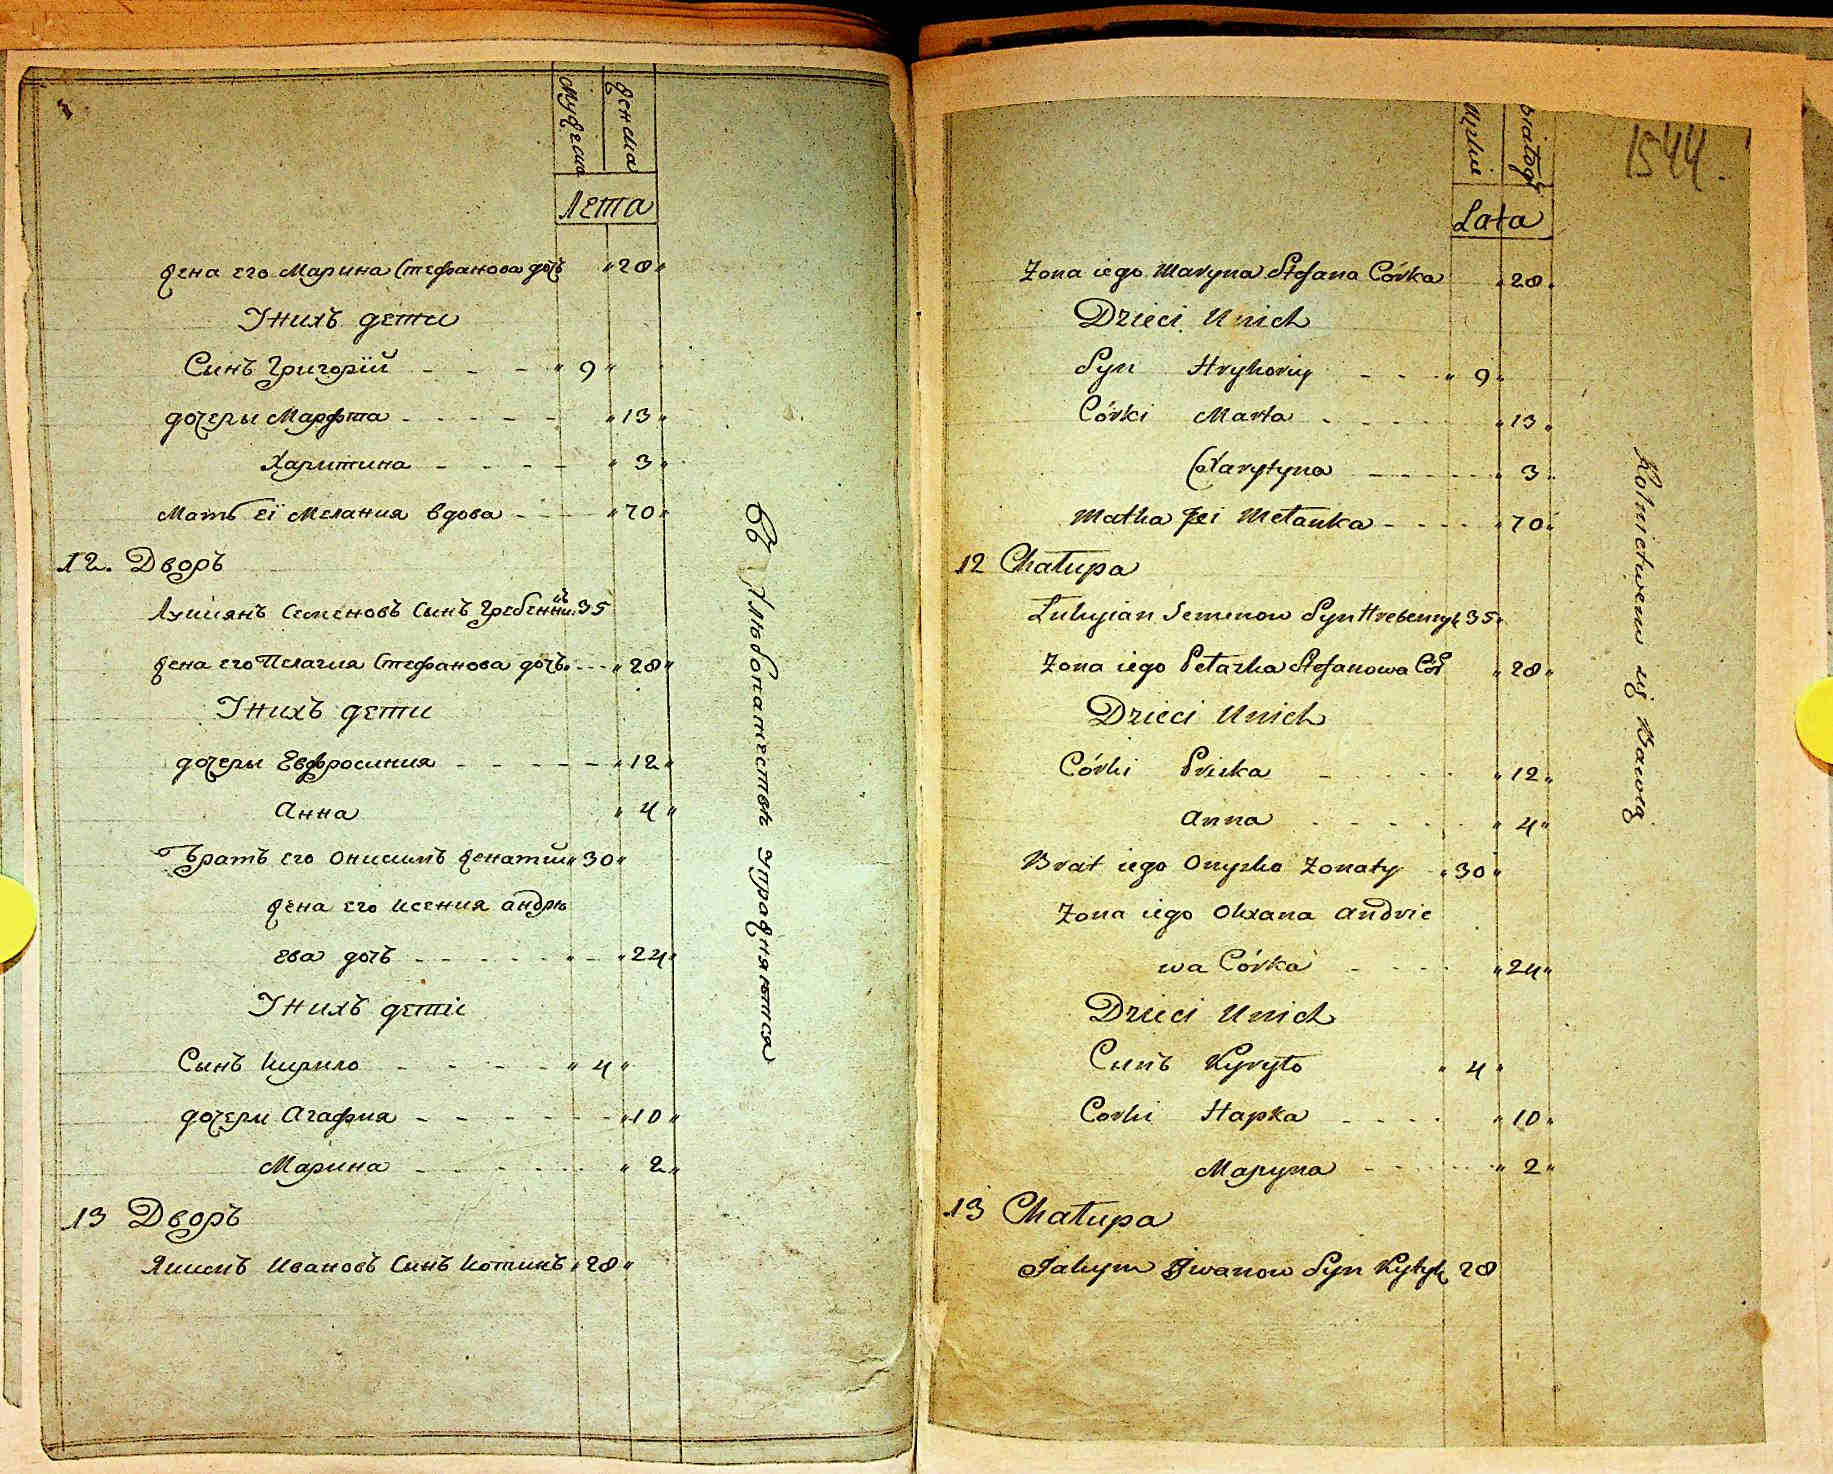 Мужеска
женска
Лета
жена его Марина Стефанова дочь "28"
У нихъ дети
Синъ Григорій - - - "9"
дочеры Марфта - - - - - "13"
Харитина - - - - "3"
Мать еі Мелания вдова - - - "70"
12. Дворъ
Лукиянъ Семеновъ Сынъ Гребенникъ 35
жена его Пелагия Стефанова дочь - - - "28"
У нихъ дети
дочеры Евфросиния - - - - - "12"
Анна "4"
Братъ его Онисимъ женатий "30"
жена его Ксения андре
ева дочь - - - - - - - "24"
У нихъ деті
Сынъ Кирило - - - - "4"
дочери Агафия - - - - - - "10"
Марина - - - - - - "2"
13 Дворъ
Якимъ Ивановъ Синъ Котикъ "28"
въ хлебопашестве упражняются
1544.
Męzkie
białogł
Lata
Zona iego Maryna Stefana Córka "28"
Dzieci Unich
Syn Hryhoriy - - - "9"
Córki Marta - - - - - "13"
Charytyna - - - - "3"
Matka Jei Mełanka - - - - "70"
12 Chałupa
Łukyian Semenow Syn Hrebennyk 35"
Zona iego Pełazka Stefanowa Cór "28"
Dzieci Unich
Córki Priska - - - - "12"
Anna - - - - - "4"
Brat iego Onyszko Zonaty "30"
Zona iego Oxana Andrie
wa Córka - - - - "24"
Dzieci Unich
Синъ Kyryło "4"
Corki Hapka - - - - "10"
Маryna - - - - - "2"
13 Chałupa
Jakym Iwanow Syn Kytyk 28
Rolnictwem się Bawią